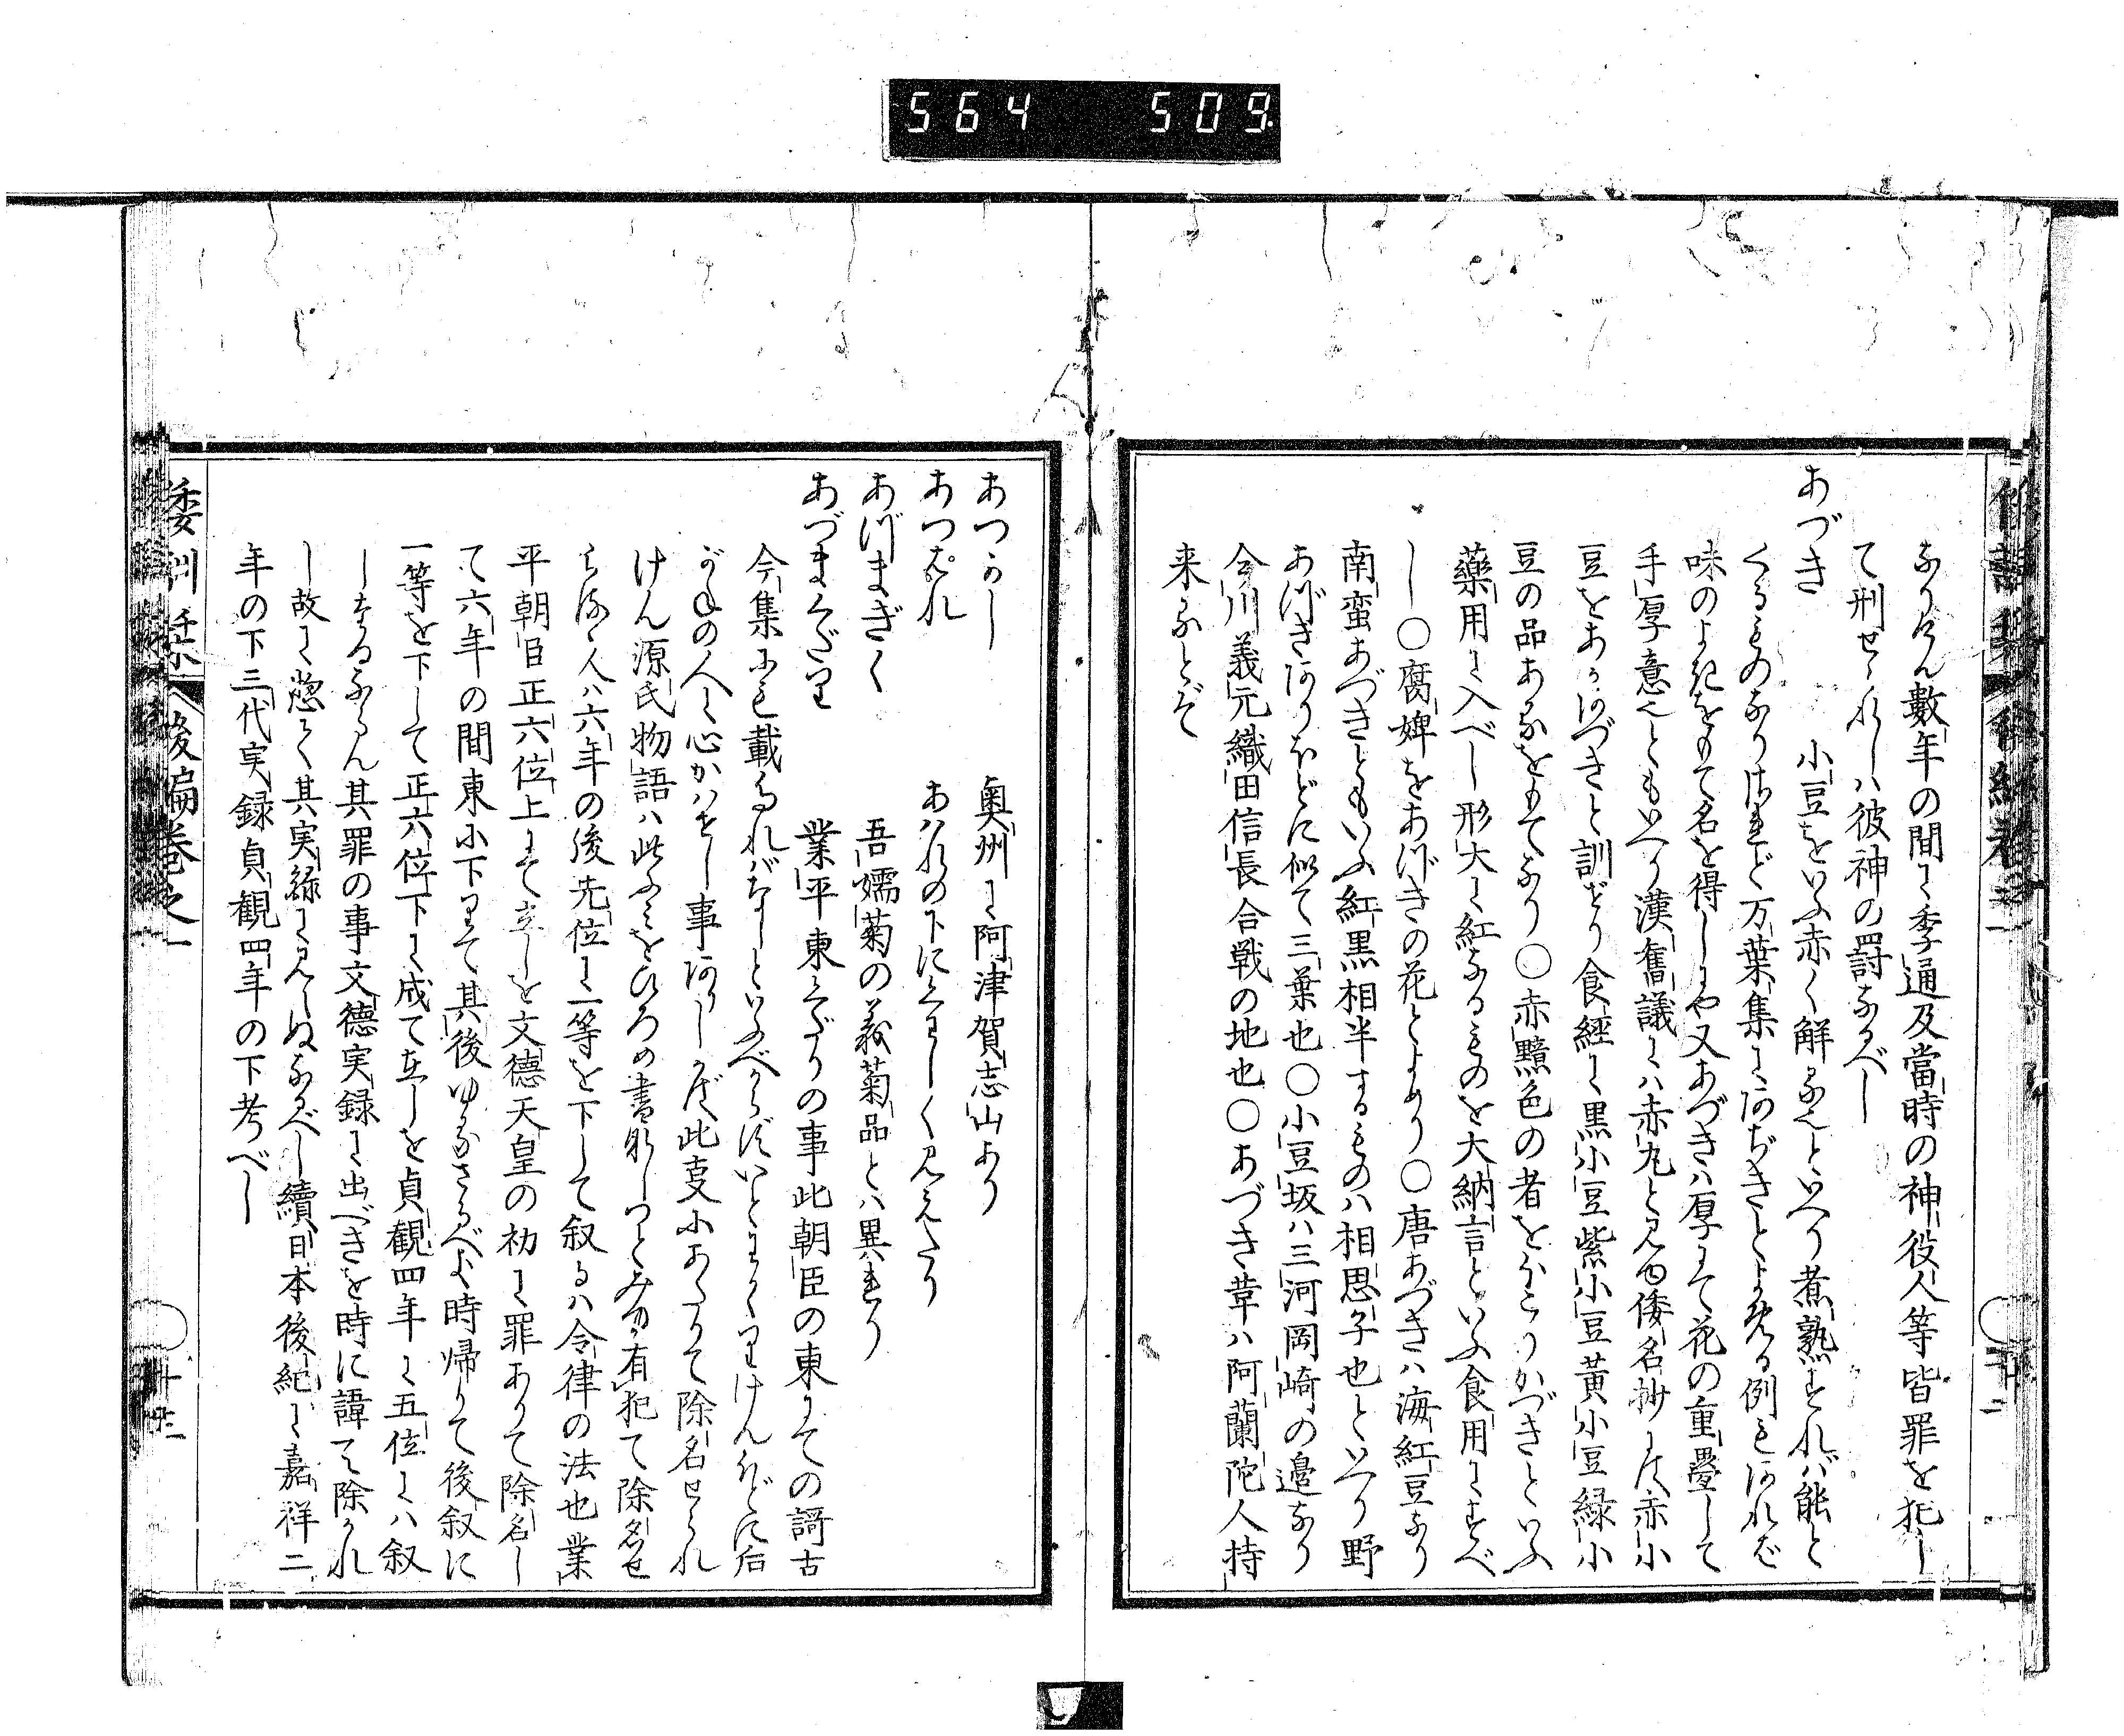 564 509
なりけん數年の間に季通及當時の神役人等皆罪を犯し
て刑せられしハ彼神の罸なるべし
あづき 小豆をいふ赤く解る也といへり煮熟すれバ能と
くるものなりされど万葉集にあぢきとよめる例もあれば
味のよきをもて名を得しにや又あづきハ厚にて花の重疊して
手厚意也ともいへり漢舊議にハ赤丸と見ゆ倭名抄には赤小
豆をあかあづきと訓ぜり食經に黒小豆紫小豆黄小豆緑小
豆の品あるをもてなり〇赤黯色の者をほこりかづきといふ
藥用に入べし形大に紅なるものを大納言といふ食用にすべ
し〇腐婢をあづきの花とよめり〇唐あづきハ海紅豆なり
南蛮あづきともいふ紅黒相半するものハ相思子也といへり野
あづきありふぢに似て三葉也〇小豆坂ハ三河岡崎の邊なり
今川義元織田信長合戦の地也〇あづき葦ハ阿蘭陀人持
来るとぞ
あつかし 奥州に阿津賀志山あり
あつぱれ あハれの下にくはしく見えたり
あづまぎく 吾嬬菊の義菊品とハ異れり
あづまくだり 業平東くだりの事此朝臣の東にての謌古
今集にも載たれバなしといふべからずいとわかゝりけんほどに后
がねの人に心かハせし事ありしかば此支にあたりて除名せられ
けん源氏物語ハ此ふミをひろめ書れしつくりみ有犯て除名せ
らるゝ人ハ六年の後先位に一等を下して叙るハ令律の法也業
平朝臣正六位上にて立しを文德天皇の初に罪ありて除名し
て六年の間東に下りて其後ゆるさるべき時帰りて後叙に
一等を下して正六位下に成て在しを貞觀四年に五位にハ叙
しなるならん其罪の事文德実録に出べきを時に諱て除かれ
し故に惣て其実録に見しぬなるべし續日本後紀に嘉祥二
年の下三代実録貞觀四年の下考べし
倭訓栞 後編巻之一